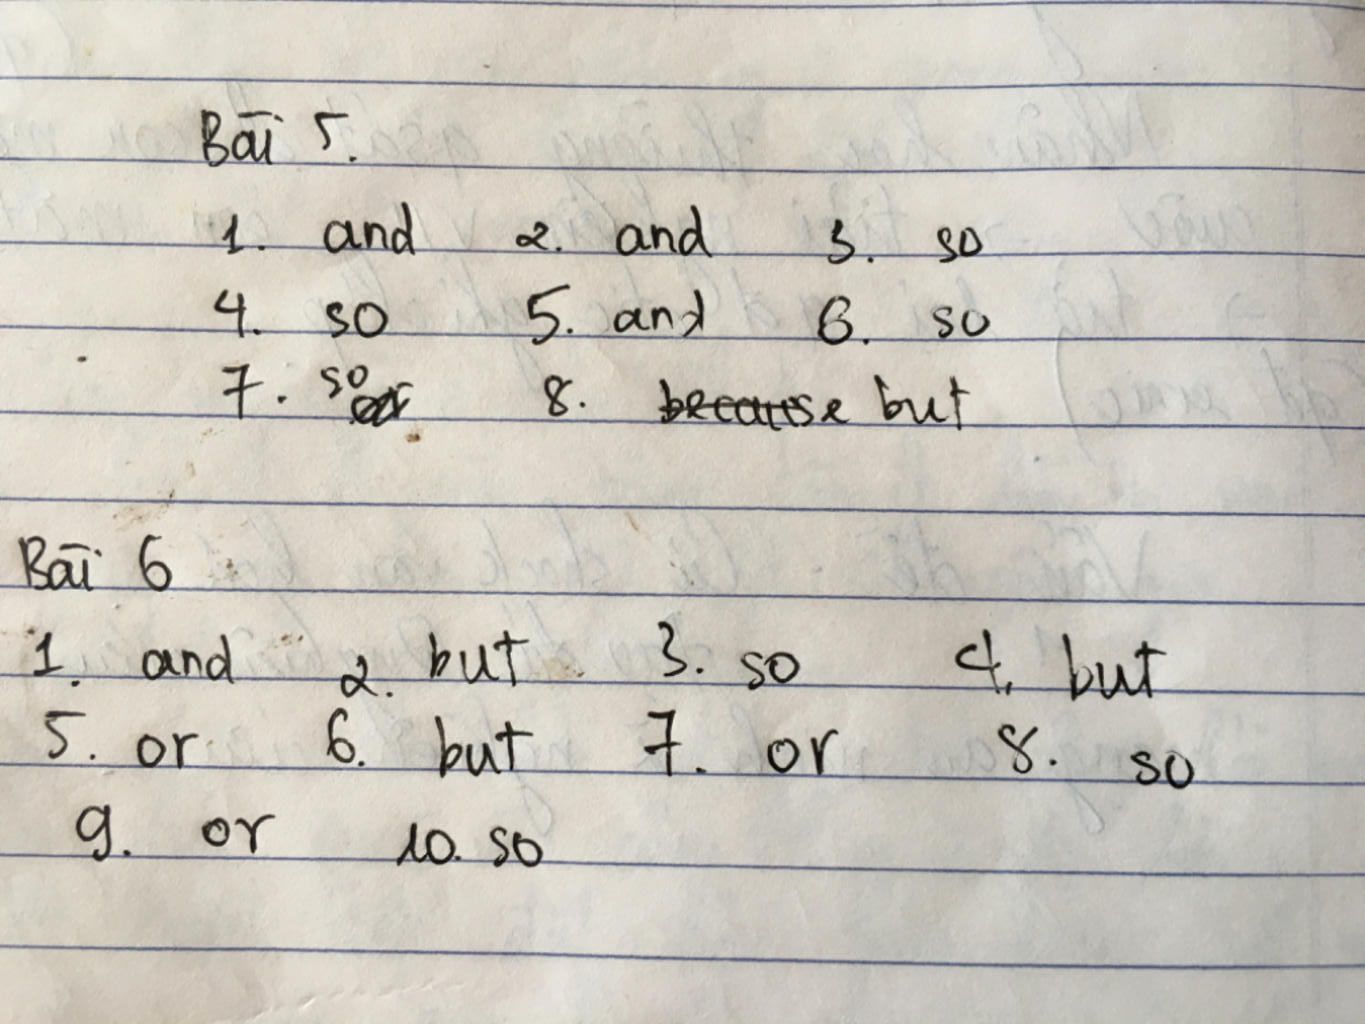 Bài 5.
1. and 2. and 3. so
4. so 5. and 6. so
7. so 8. because but
Bài 6
1. and 2. but 3. so 4. but
5. or 6. but 7. or 8. so
9. or 10. so